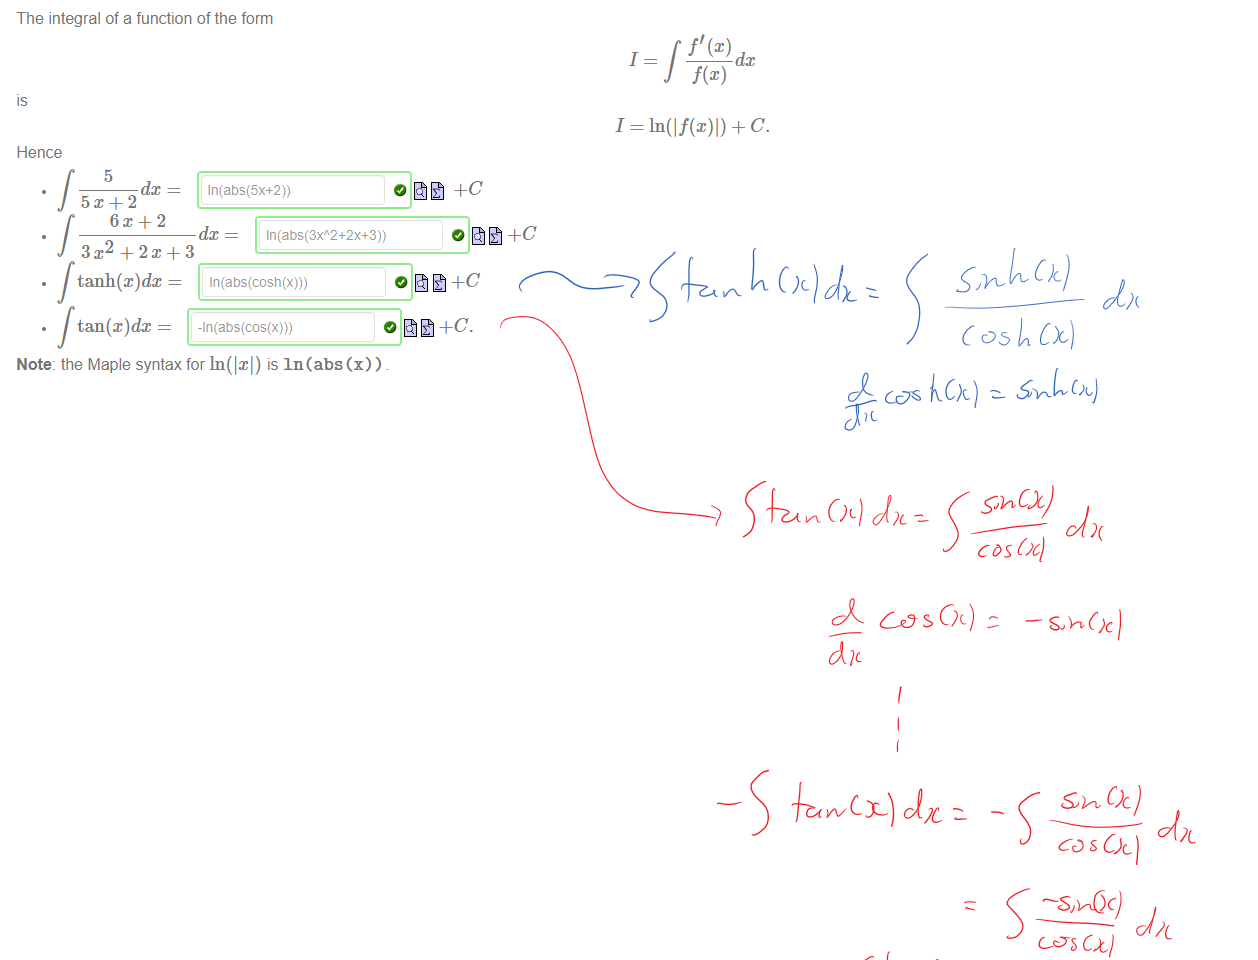 The integral of a function of the form
I = ∫ f′(x)/f(x) dx
is
I = ln(|f(x)|) + C.
Hence
• ∫ 5/(5x + 2) dx = ln(abs(5x+2)) +C
• ∫ (6x + 2)/(3x² + 2x + 3) dx = ln(abs(3x^2+2x+3)) +C
• ∫ tanh(x)dx = ln(abs(cosh(x))) +C
• ∫ tan(x)dx = -ln(abs(cos(x))) +C.
Note: the Maple syntax for ln(|x|) is ln(abs(x)).
∫ tanh(x) dx = ∫ sinh(x)/cosh(x) dx
d/dx cosh(x) = sinh(x)
∫ tan(x) dx = ∫ sin(x)/cos(x) dx
d/dx cos(x) = -sin(x)
-∫ tan(x) dx = -∫ sin(x)/cos(x) dx
= ∫ -sin(x)/cos(x) dx